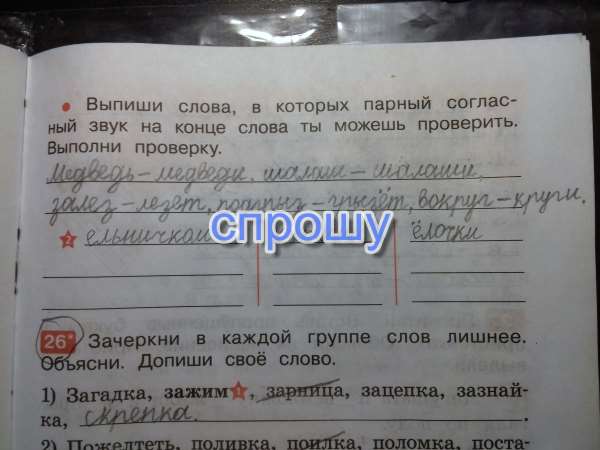 • Выпиши слова, в которых парный соглас-
ный звук на конце слова ты можешь проверить.
Выполни проверку.
Медведь – медведи, шалаш – шалаши,
залез – лезет, подгрыз – грызёт, вокруг – круги.
спрошу
2 ельничком ёлочки
26* Зачеркни в каждой группе слов лишнее.
Объясни. Допиши своё слово.
1) Загадка, зажим 1, зарница, зацепка, зазнай-
ка, скрепка.
2) Пожелтеть, поливка, поилка, поломка, поста-